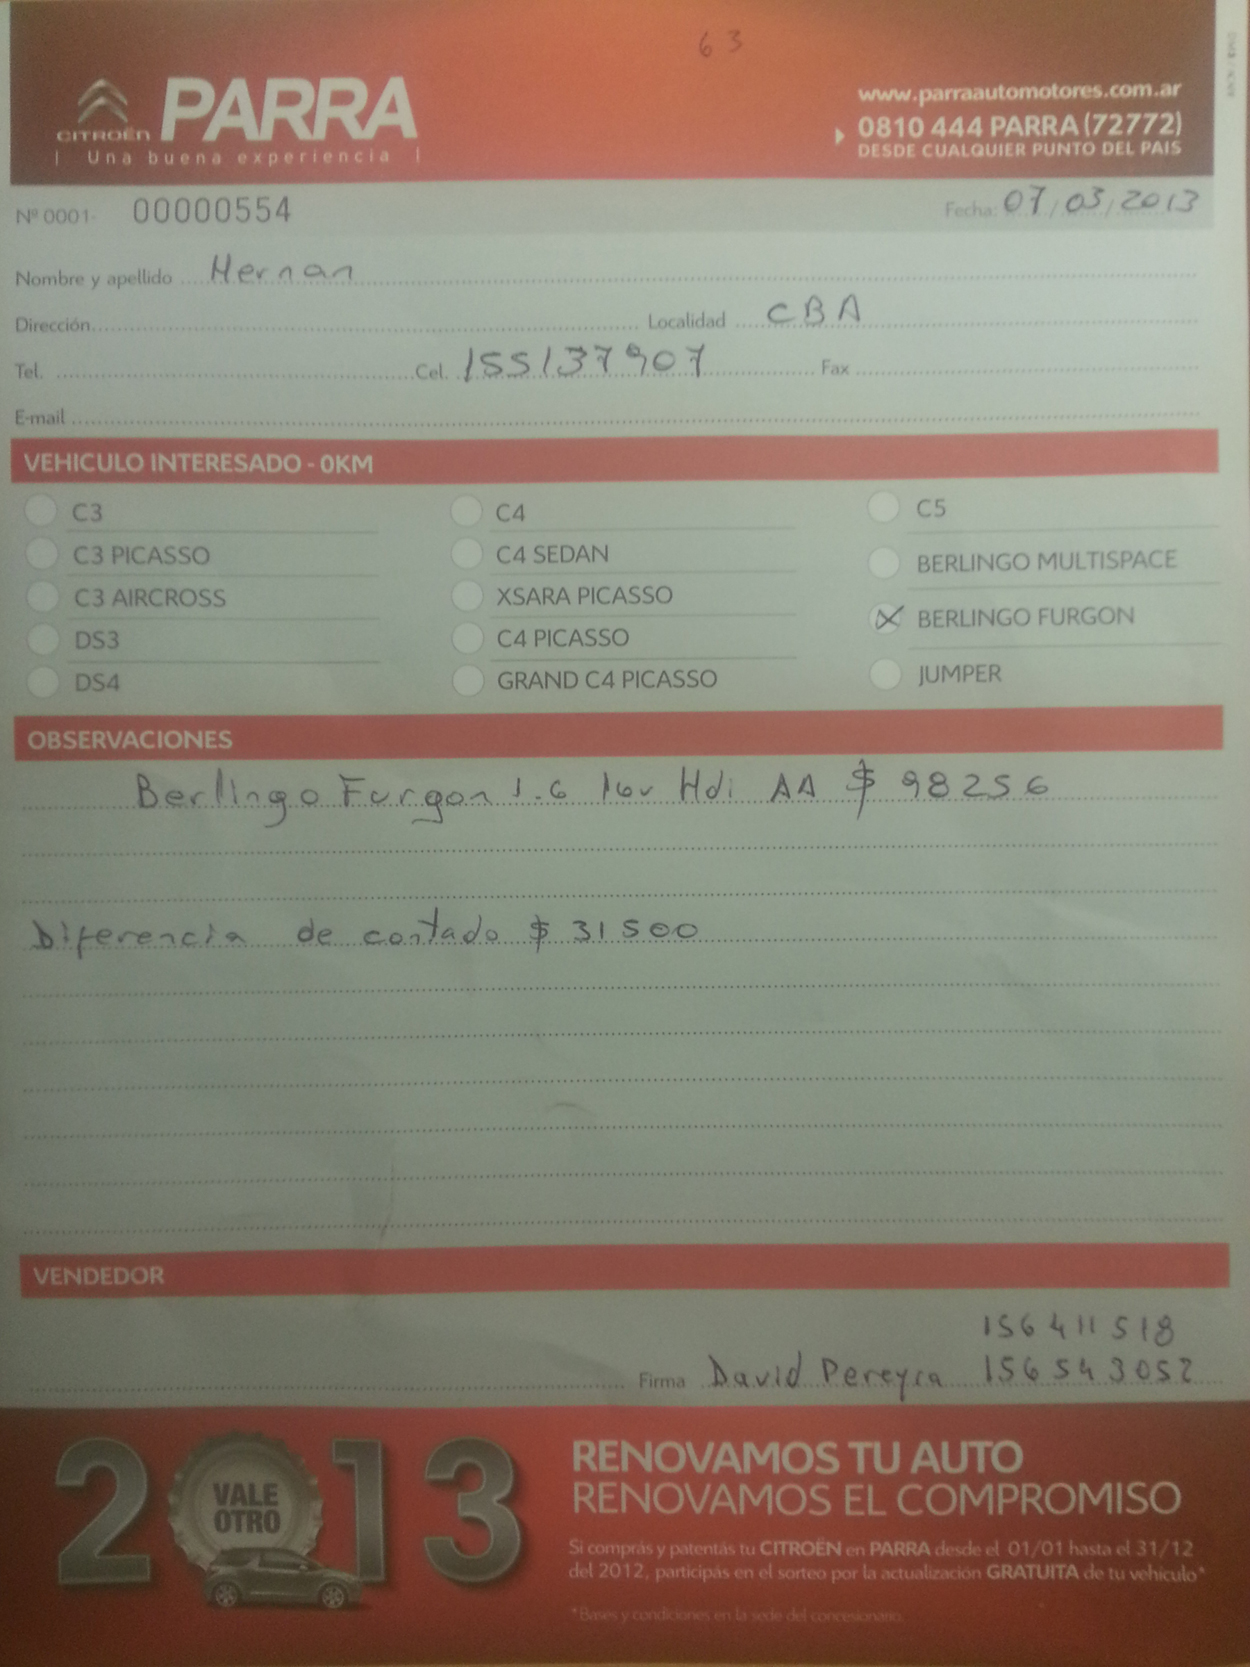 63
CITROËN PARRA
| Una buena experiencia |
www.parraautomotores.com.ar
0810 444 PARRA (72772)
DESDE CUALQUIER PUNTO DEL PAIS
Nº 0001- 00000554
Fecha: 07/03/2013
Nombre y apellido Hernan
Dirección Localidad CBA
Tel. Cel. 155137907 Fax
E-mail
VEHICULO INTERESADO - 0KM
C3
C3 PICASSO
C3 AIRCROSS
DS3
DS4
C4
C4 SEDAN
XSARA PICASSO
C4 PICASSO
GRAND C4 PICASSO
C5
BERLINGO MULTISPACE
X BERLINGO FURGON
JUMPER
OBSERVACIONES
Berlingo Furgon 1.6 16v Hdi AA $ 98256
Diferencia de contado $ 31500
VENDEDOR
156411518
Firma David Pereyra 156543052
2013
VALE
OTRO
RENOVAMOS TU AUTO
RENOVAMOS EL COMPROMISO
Si comprás y patentás tu CITROËN en PARRA desde el 01/01 hasta el 31/12
del 2012, participás en el sorteo por la actualización GRATUITA de tu vehículo*
*Bases y condiciones en la sede del concesionario.